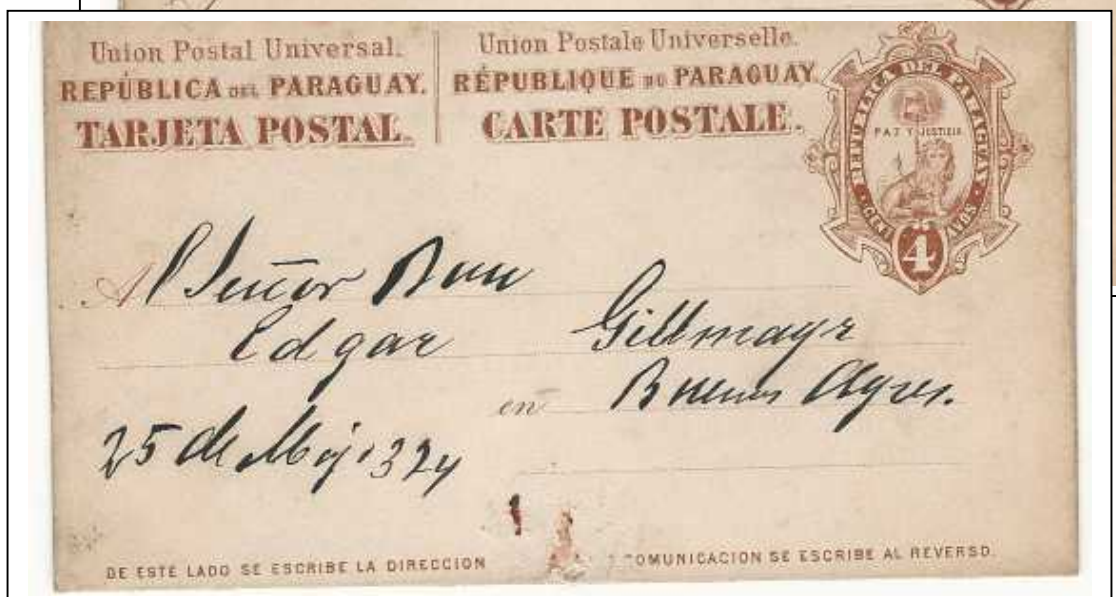 Union Postal Universal.
REPÚBLICA DEL PARAGUAY.
TARJETA POSTAL.
Union Postale Universelle.
RÉPUBLIQUE DU PARAGUAY
CARTE POSTALE.
REPUBLICA DEL PARAGUAY
PAZ Y JUSTICIA
CENT AVOS
4
Al Señor Don
Edgar Gillmayr
en Buenos Ayres.
25 de Mayo 324
DE ESTE LADO SE ESCRIBE LA DIRECCION
COMUNICACION SE ESCRIBE AL REVERSO.